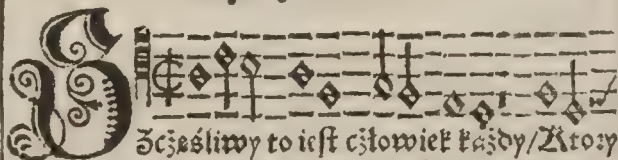 Szcżęśliwy to ieſt cżłowiek każdy/Ktory